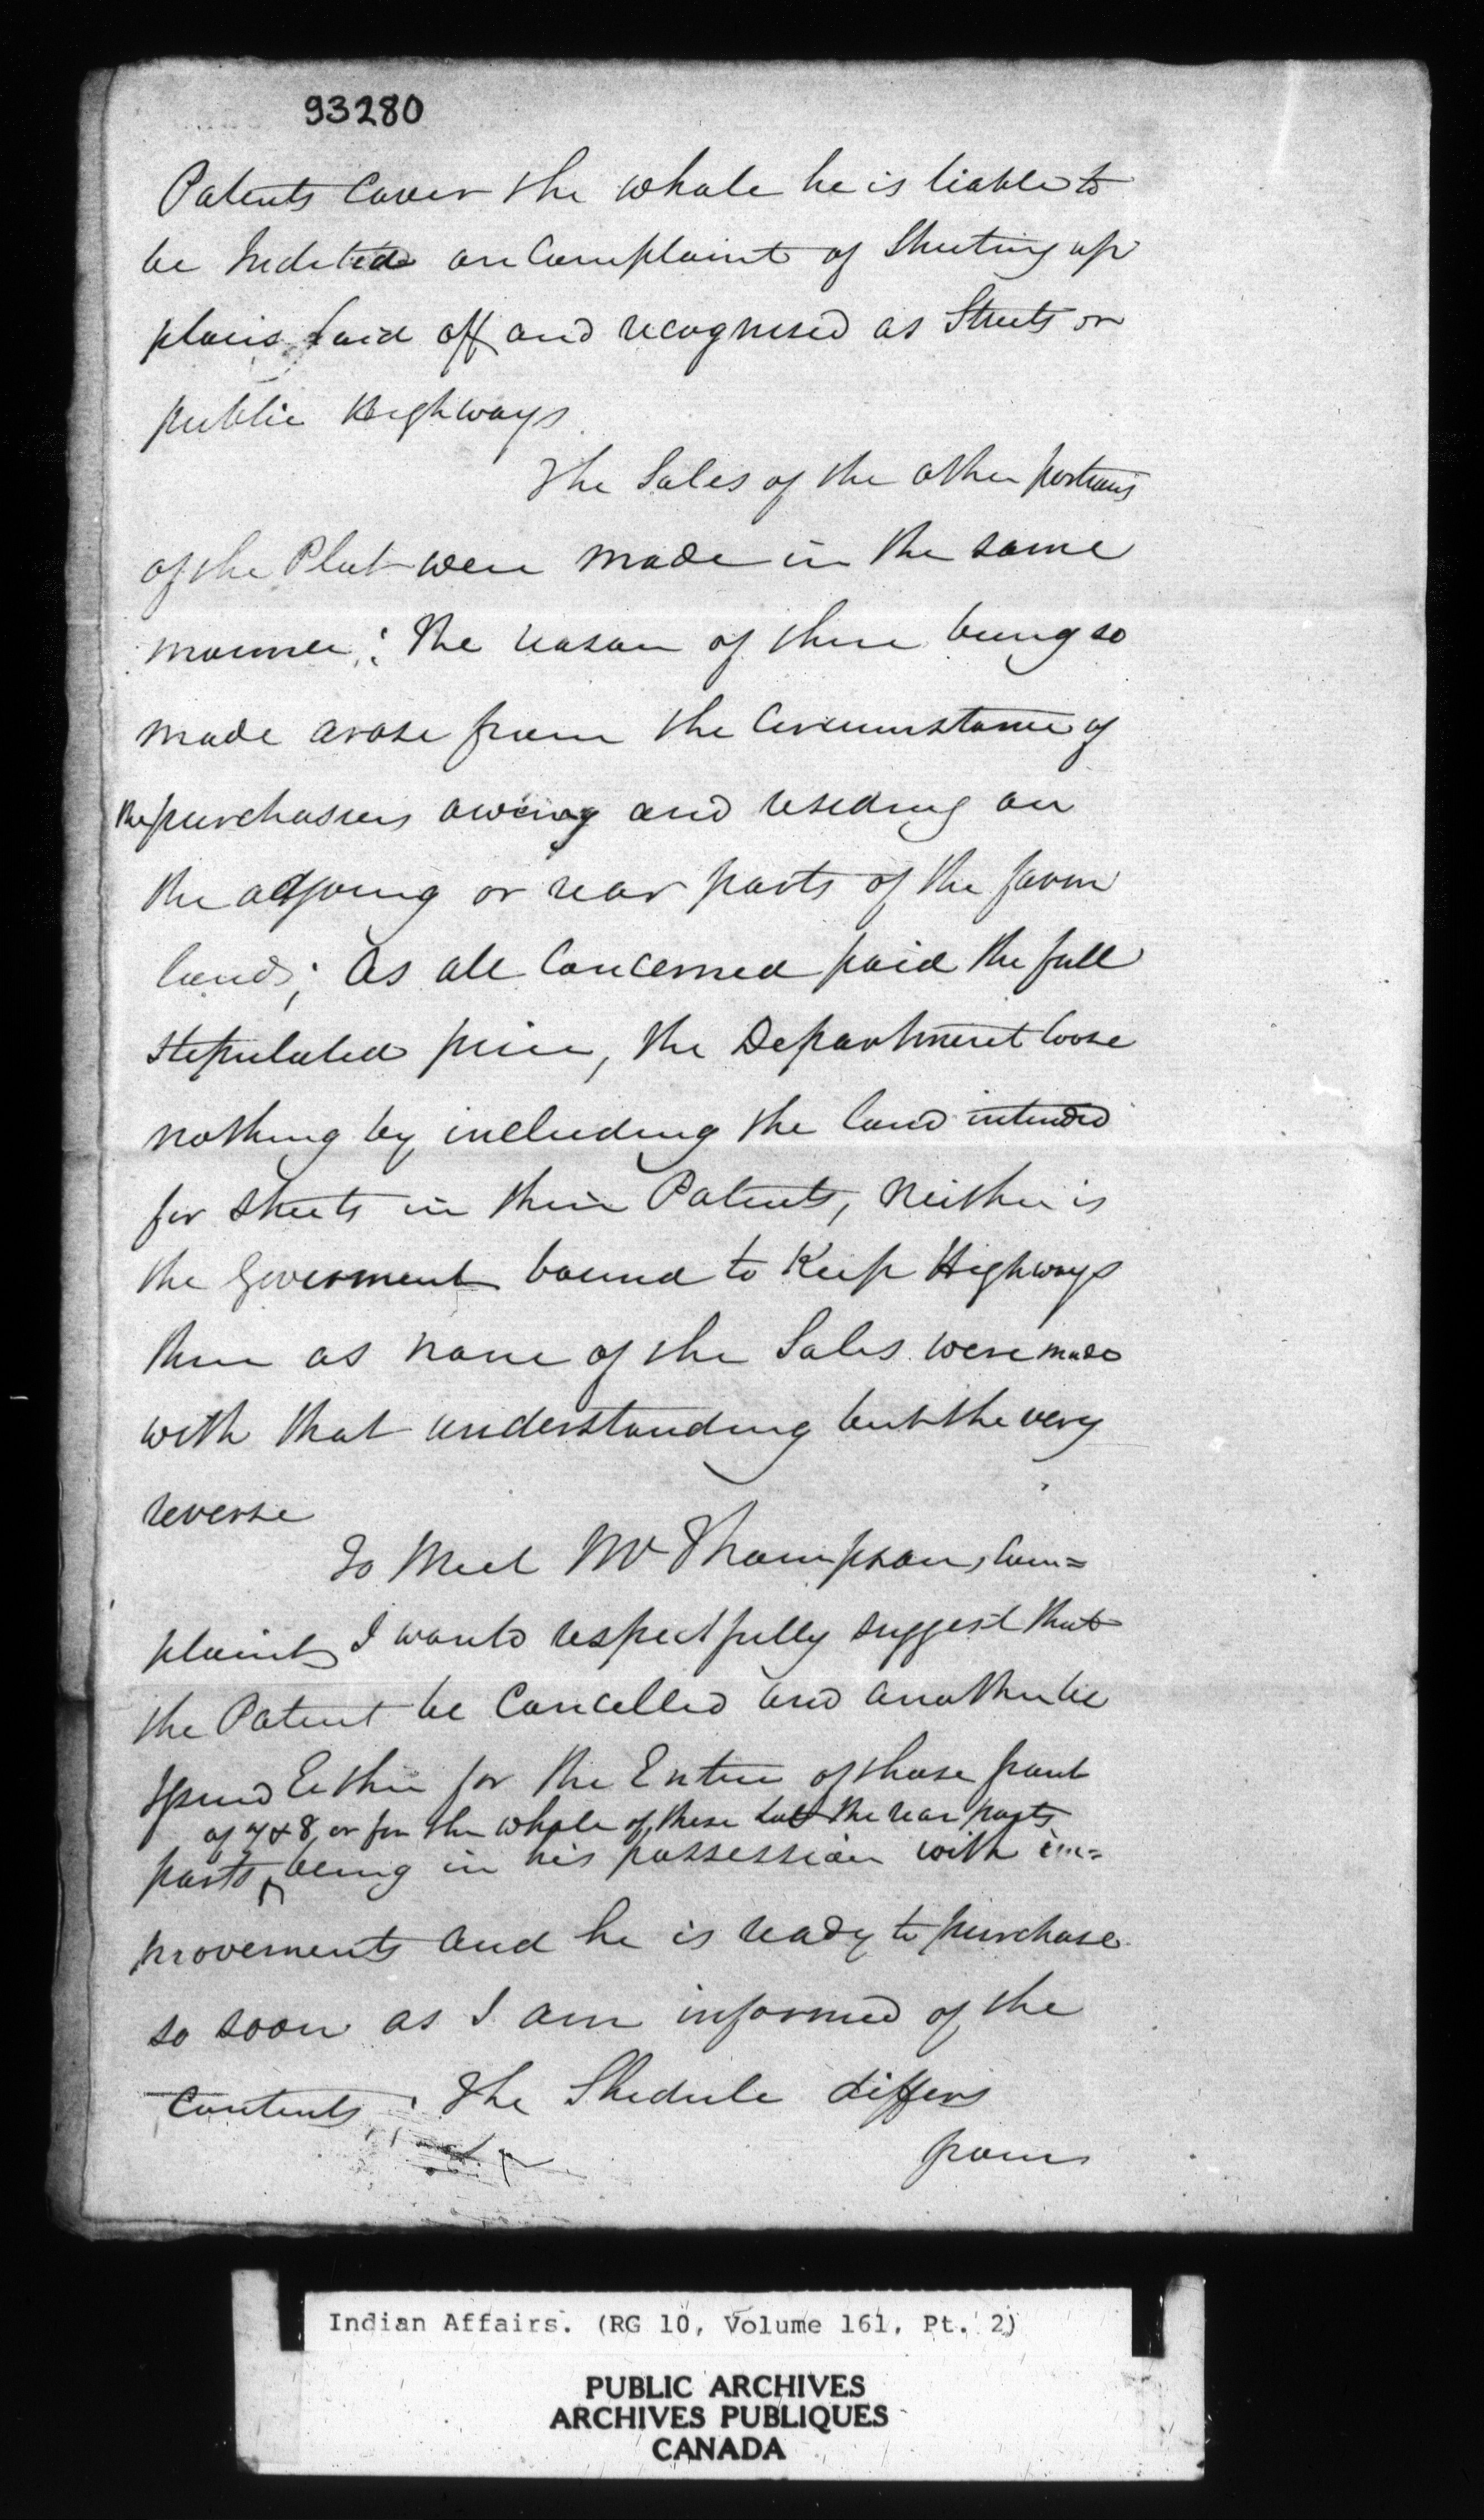 93280
Patents Cover the whole he is liable to
be Indicted on Complaint of Shutting up
places laid off and recognised as Streets or
public Highways
The Sales of the other portions
of the Plot were made in the same
manner; the reason of there being so
made arose from the Circumstance of
the purchasers owing and residing on
the adjoing or rear parts of the farm
lands; As all Concerned paid the full
stipulated price, the Department loose
nothing by including the land intended
for streets in their Patents, neither is
the Goverment bound to Keep Highways
there as none of the Sales were made
with that understanding but the very
reverse
To Meet Mr Thompson, Com=
plaint I would respectfully suggest that
the Patent be Cancelled and another be
Issued Either for the Entire of those front
of 7 & 8, or for the whole of these Lots the rear parts
parts being in his possession with im=
provements and he is ready to purchase
so soon as I am informed of the
Contents. The Shedule differs
from
Indian Affairs. (RG 10, Volume 161, Pt. 2)
PUBLIC ARCHIVES
ARCHIVES PUBLIQUES
CANADA